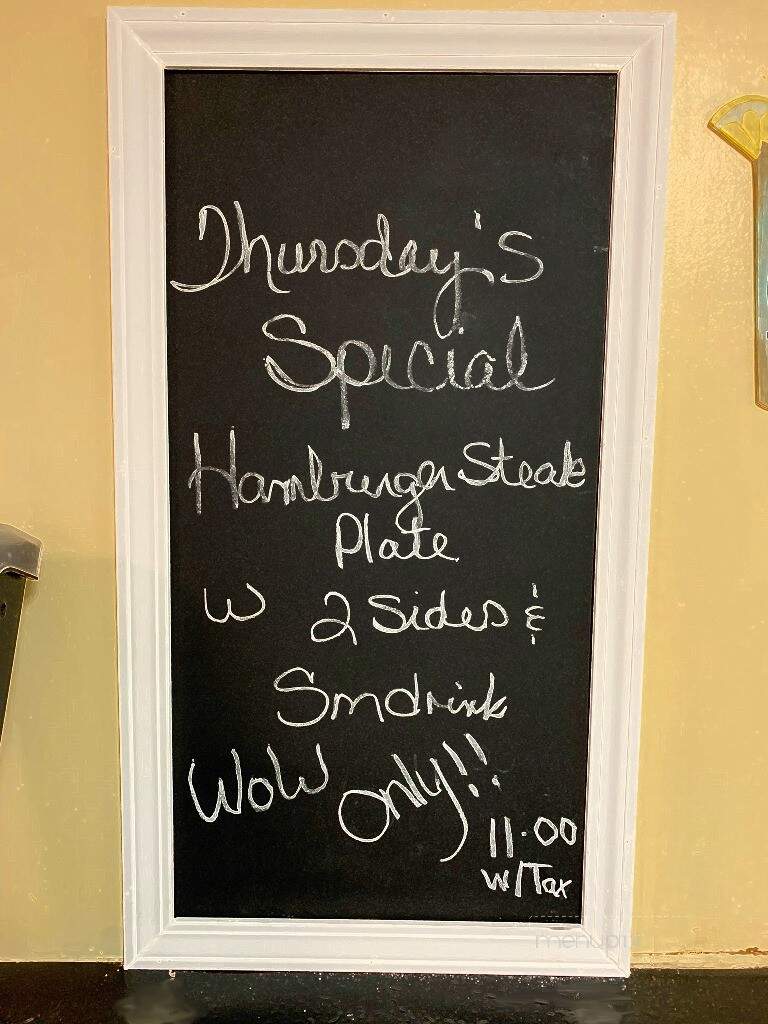 Thursday's
Special
Hamburger Steak
Plate
W 2 Sides &
Sm drink
WOW only!!
11.00
w/Tax
menupix